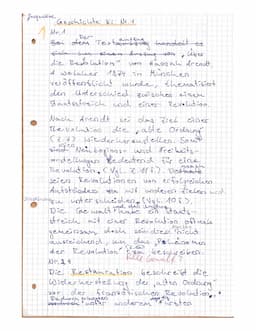 Geschichte Kl. Nr.1
Nr.1
Der auszug
Bei dem Textauszug handelt es
sich um einen Auszug von „Über
die Revolution" von Hannah Arendt,
welcher 1974 in München
veröffentlicht wurde, thematisiert
den Unterschied zwischen einem
Staatsstreich und einer Revolution.
Nach Arendt sei das Ziel einer
Revolution die „alte Ordnung"
wiederherzustellen. Somit
sind Neubeginns- und Freiheits-
vorstellungen bedeutend für eine
Revolution (Vgl. Z.
seien Revolutionen von erfolgreichen
Aufständen mit anderen Zielen
zu unterscheiden. (Vgl. 10f.).
Die Gewalt habe ein Staats-
streich mit einer Revolution oftmals
gemeinsam, doch sind dies nicht
ausreichend, um das Phänomen
der Revolution zu beschreiben.
Nr.2
Die Restauration beschreibt die
Wiederherstellung der „alten Ordnung"
vor der französischen Revolution.
unter anderem